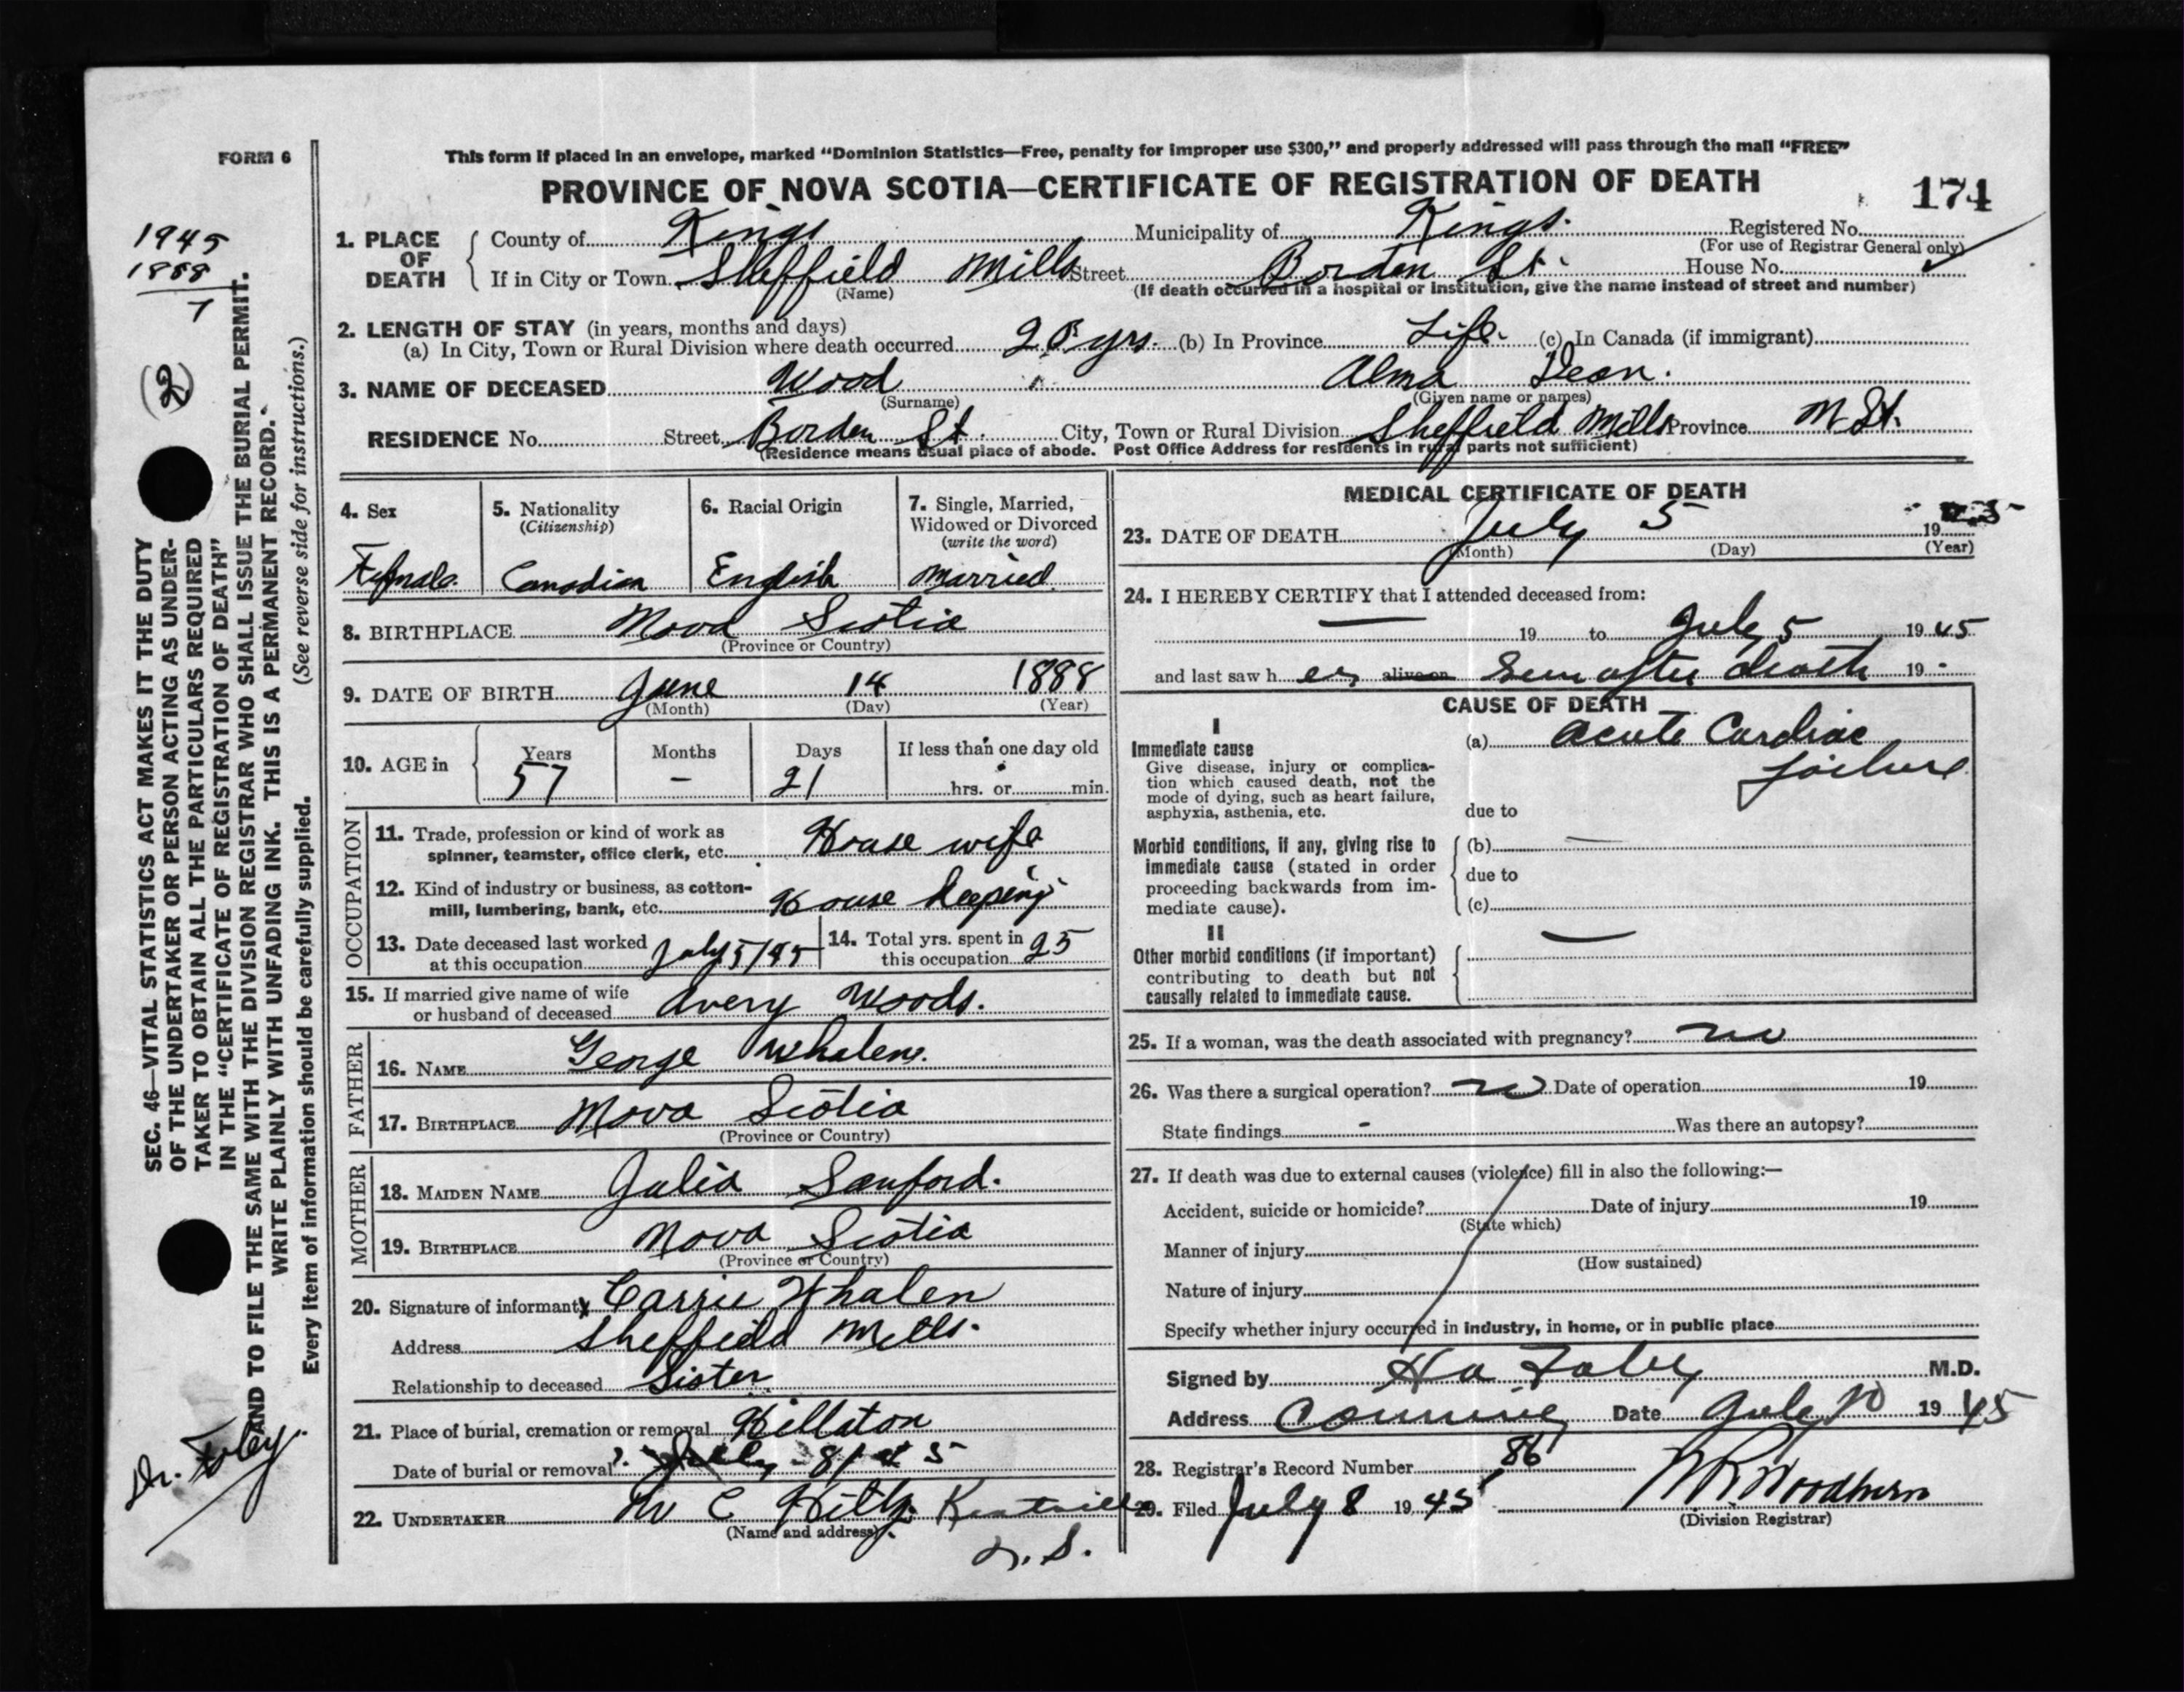 FORM 6
This form if placed in an envelope, marked “Dominion Statistics—Free, penalty for improper use $300,” and properly addressed will pass through the mail “FREE”
PROVINCE OF NOVA SCOTIA—CERTIFICATE OF REGISTRATION OF DEATH
174
1945
1888
7
(2)
SEC. 46—VITAL STATISTICS ACT MAKES IT THE DUTY
OF THE UNDERTAKER OR PERSON ACTING AS UNDER-
TAKER TO OBTAIN ALL THE PARTICULARS REQUIRED
IN THE “CERTIFICATE OF REGISTRATION OF DEATH”
AND TO FILE THE SAME WITH THE DIVISION REGISTRAR WHO SHALL ISSUE THE BURIAL PERMIT.
WRITE PLAINLY WITH UNFADING INK. THIS IS A PERMANENT RECORD.
Every item of information should be carefully supplied. (See reverse side for instructions.)
Dr. Foley.
1. PLACE OF DEATH
County of Kings Municipality of Kings. Registered No.
(For use of Registrar General only)
If in City or Town Sheffield Mills Street Borden St. House No.
(Name) (If death occurred in a hospital or institution, give the name instead of street and number)
2. LENGTH OF STAY (in years, months and days)
(a) In City, Town or Rural Division where death occurred yrs. (b) In Province Life. (c) In Canada (if immigrant)
3. NAME OF DECEASED Wood Alma Dean.
(Surname) (Given name or names)
RESIDENCE No. Street Borden St. City, Town or Rural Division Sheffield Mills Province N St.
(Residence means usual place of abode. Post Office Address for residents in rural parts not sufficient)
4. Sex
Female
5. Nationality
(Citizenship)
Canadian
6. Racial Origin
English
7. Single, Married,
Widowed or Divorced
(write the word)
Married.
8. BIRTHPLACE Nova Scotia
(Province or Country)
9. DATE OF BIRTH June 14 1888
(Month) (Day) (Year)
10. AGE in
Years Months Days If less than one day old
57 - 21 hrs. or min.
OCCUPATION
11. Trade, profession or kind of work as
spinner, teamster, office clerk, etc. House wife
12. Kind of industry or business, as cotton-
mill, lumbering, bank, etc. House keeping
13. Date deceased last worked
at this occupation July 5/45
14. Total yrs. spent in
this occupation 25
15. If married give name of wife
or husband of deceased Avery Woods.
FATHER
16. NAME George Whalen.
17. BIRTHPLACE Nova Scotia
(Province or Country)
MOTHER
18. MAIDEN NAME Julia Sanford.
19. BIRTHPLACE Nova Scotia
(Province or Country)
20. Signature of informant x Carrie Whalen
Address Sheffield Mills.
Relationship to deceased Sister
21. Place of burial, cremation or removal Hillaton
Date of burial or removal? July 8/45
22. UNDERTAKER W C Hiltz Kentville
(Name and address)
N.S.
MEDICAL CERTIFICATE OF DEATH
23. DATE OF DEATH July 5 19 45
(Month) (Day) (Year)
24. I HEREBY CERTIFY that I attended deceased from:
— 19 to July 5 19 45
and last saw h er alive on Seen after death 19 -
CAUSE OF DEATH
I
Immediate cause
Give disease, injury or complica-
tion which caused death, not the
mode of dying, such as heart failure,
asphyxia, asthenia, etc.
(a) Acute Cardiac
failure
due to
Morbid conditions, if any, giving rise to
immediate cause (stated in order
proceeding backwards from im-
mediate cause).
(b) —
due to
(c)
II
Other morbid conditions (if important)
contributing to death but not
causally related to immediate cause.
—
25. If a woman, was the death associated with pregnancy? no
26. Was there a surgical operation? no Date of operation 19
State findings - Was there an autopsy?
27. If death was due to external causes (violence) fill in also the following:—
Accident, suicide or homicide? Date of injury 19
(State which)
Manner of injury
(How sustained)
Nature of injury
Specify whether injury occurred in industry, in home, or in public place
Signed by Foley M.D.
Address Canning Date July 10 19 45
28. Registrar's Record Number 86
29. Filed July 8 19 45 Woodburn
(Division Registrar)